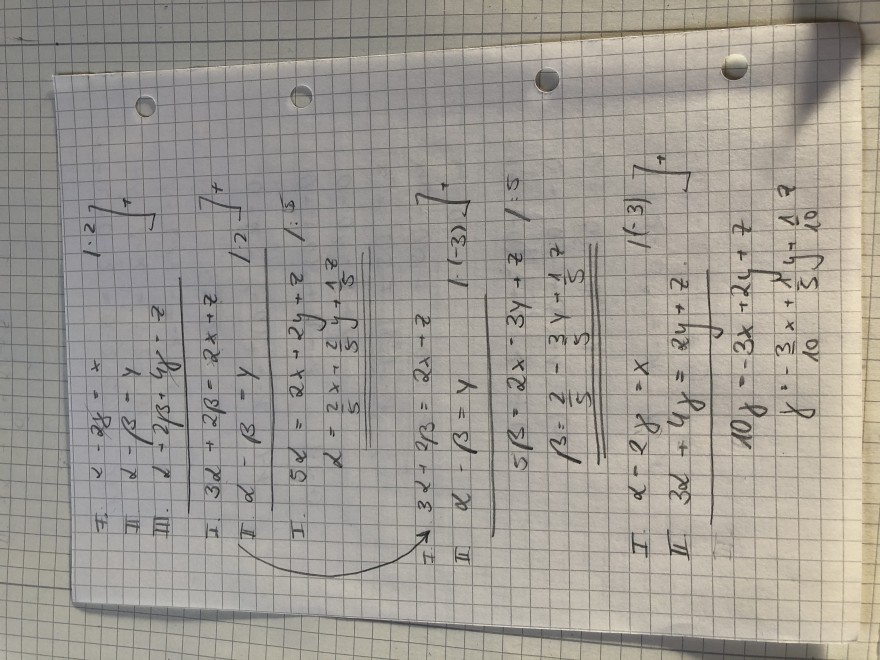 I. α - 2γ = x /·2 ] +
II α - β = y
III. α + 2β + 4γ = z
I. 3α + 2β = 2x + z ] +
II α - β = y /·2
I. 5α = 2x + 2y + z /:5
α = 2/5 x + 2/5 y + 1/5 z
I. 3α + 2β = 2x + z ] +
II α - β = y /·(-3)
5β = 2x - 3y + z /:5
β = 2/5 - 3/5 y + 1/5 z
I. α - 2γ = x /(-3) ] +
II 3α + 4γ = 2y + z.
10γ = -3x + 2y + z
γ = -3/10 x + 1/5 y + 1/10 z